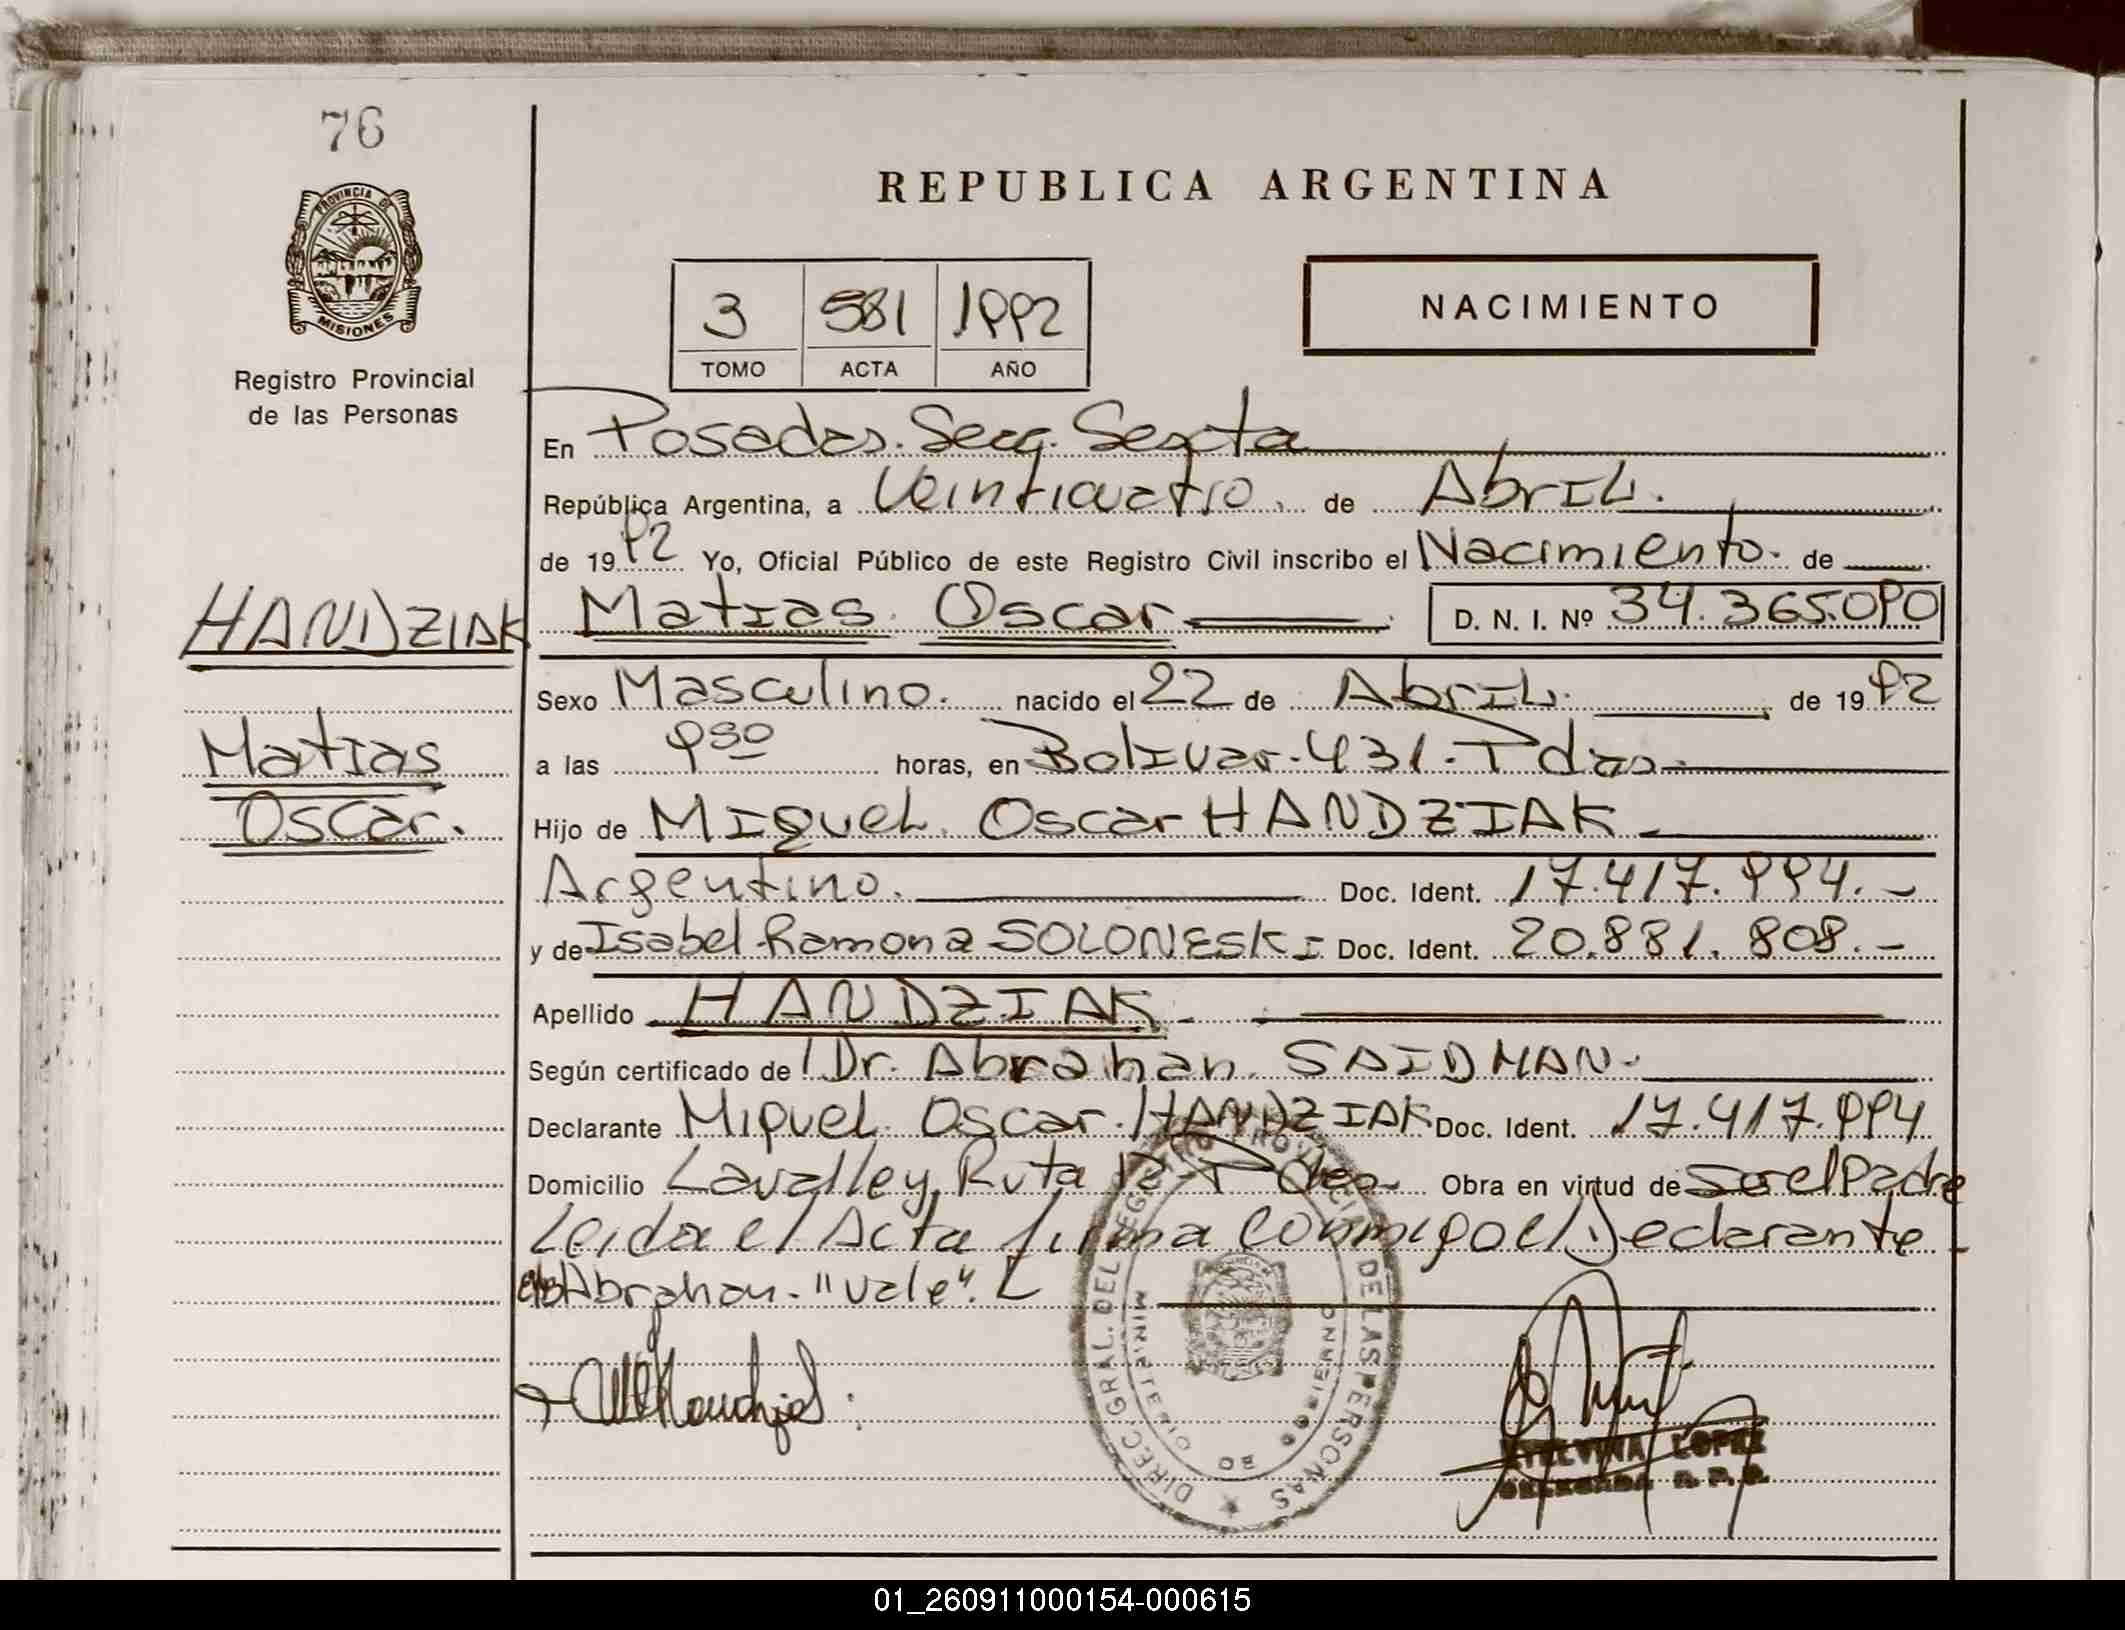 76
PROVINCIA DE
MISIONES
Registro Provincial
de las Personas
REPUBLICA ARGENTINA
3 581 1992
TOMO ACTA AÑO
NACIMIENTO
En Posadas. Secc. Sexta
República Argentina, a Veinticuatro. de Abril.
de 1992 Yo, Oficial Público de este Registro Civil inscribo el Nacimiento. de
HANDZIAK Matias Oscar D. N. I. Nº 34.365.090
Sexo Masculino. nacido el 22 de Abril. de 1992
Matias
a las 9 50 horas, en Bolivar. 431. Pdas.
Oscar.
Hijo de Miguel Oscar HANDZIAK
Argentino. Doc. Ident. 17.417.994.-
y de Isabel Ramona SOLONESKI Doc. Ident. 20.881.808.-
Apellido HANDZIAK.
Según certificado de Dr. Abrahan SAIDMAN.
Declarante Miguel Oscar HANDZIAK Doc. Ident. 17.417.994
Domicilio Lavalle y Ruta 12 Pdas Obra en virtud de ser el Padre
Leida el Acta firma conmigo el Declarante
Abrahan. "Vale".
DIREC. GRAL. DEL REGISTRO PROVINCIAL DE LAS PERSONAS
MINISTERIO DE GOBIERNO
ETELVINA LOPEZ
DELEGADA R. P. P.
01_260911000154-000615